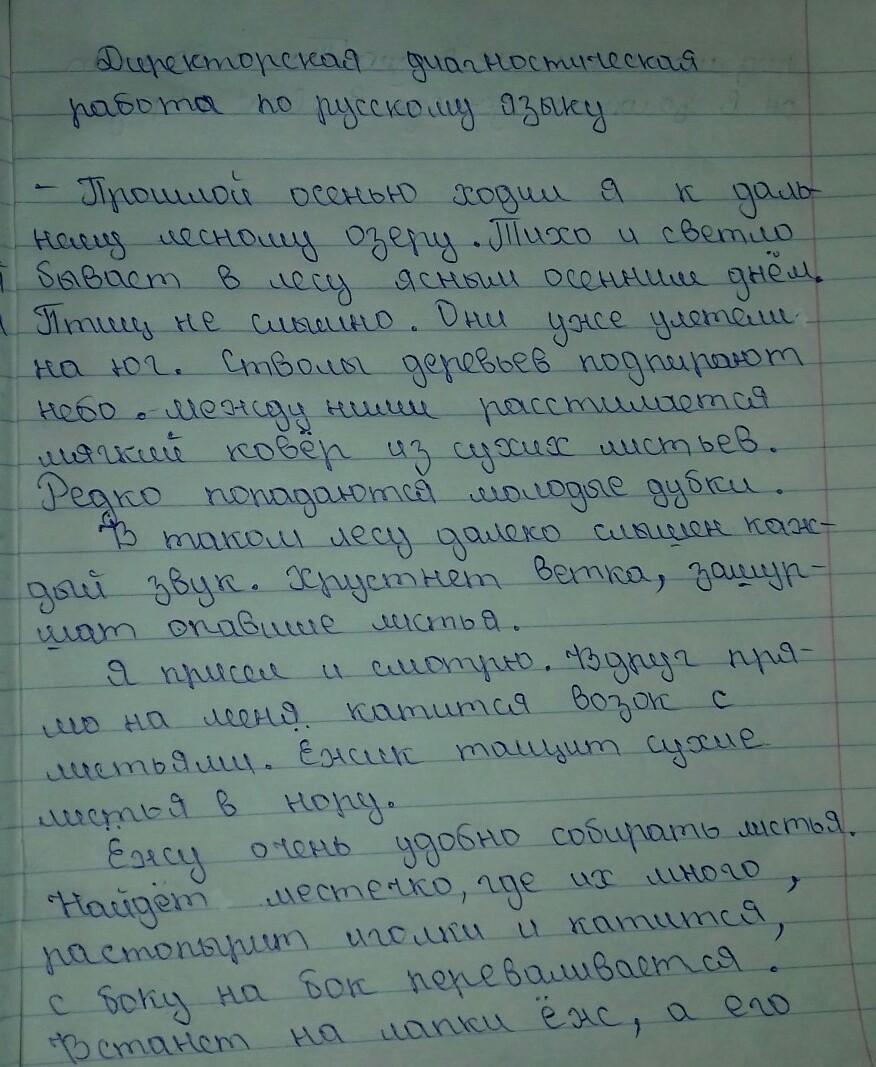 Директорская диагностическая
работа по русскому языку
- Прошлой осенью ходил я к даль-
нему лесному озеру. Тихо и светло
бывает в лесу ясным осенним днём.
Птиц не слышно. Они уже улетели
на юг. Стволы деревьев подпирают
небо. между ними расстилается
мягкий ковёр из сухих листьев.
Редко попадаются молодые дубки.
В таком лесу далеко слышен каж-
дый звук. Хрустнет ветка, зашур-
шат опавшие листья.
Я присел и смотрю. Вдруг пря-
мо на меня катится возок с
листьями. Ёжик тащит сухие
листья в нору.
Ежу очень удобно собирать листья.
Найдёт местечко, где их много,
растопырит иголки и катится,
с боку на бок переваливается.
Встанет на лапки ёж, а его